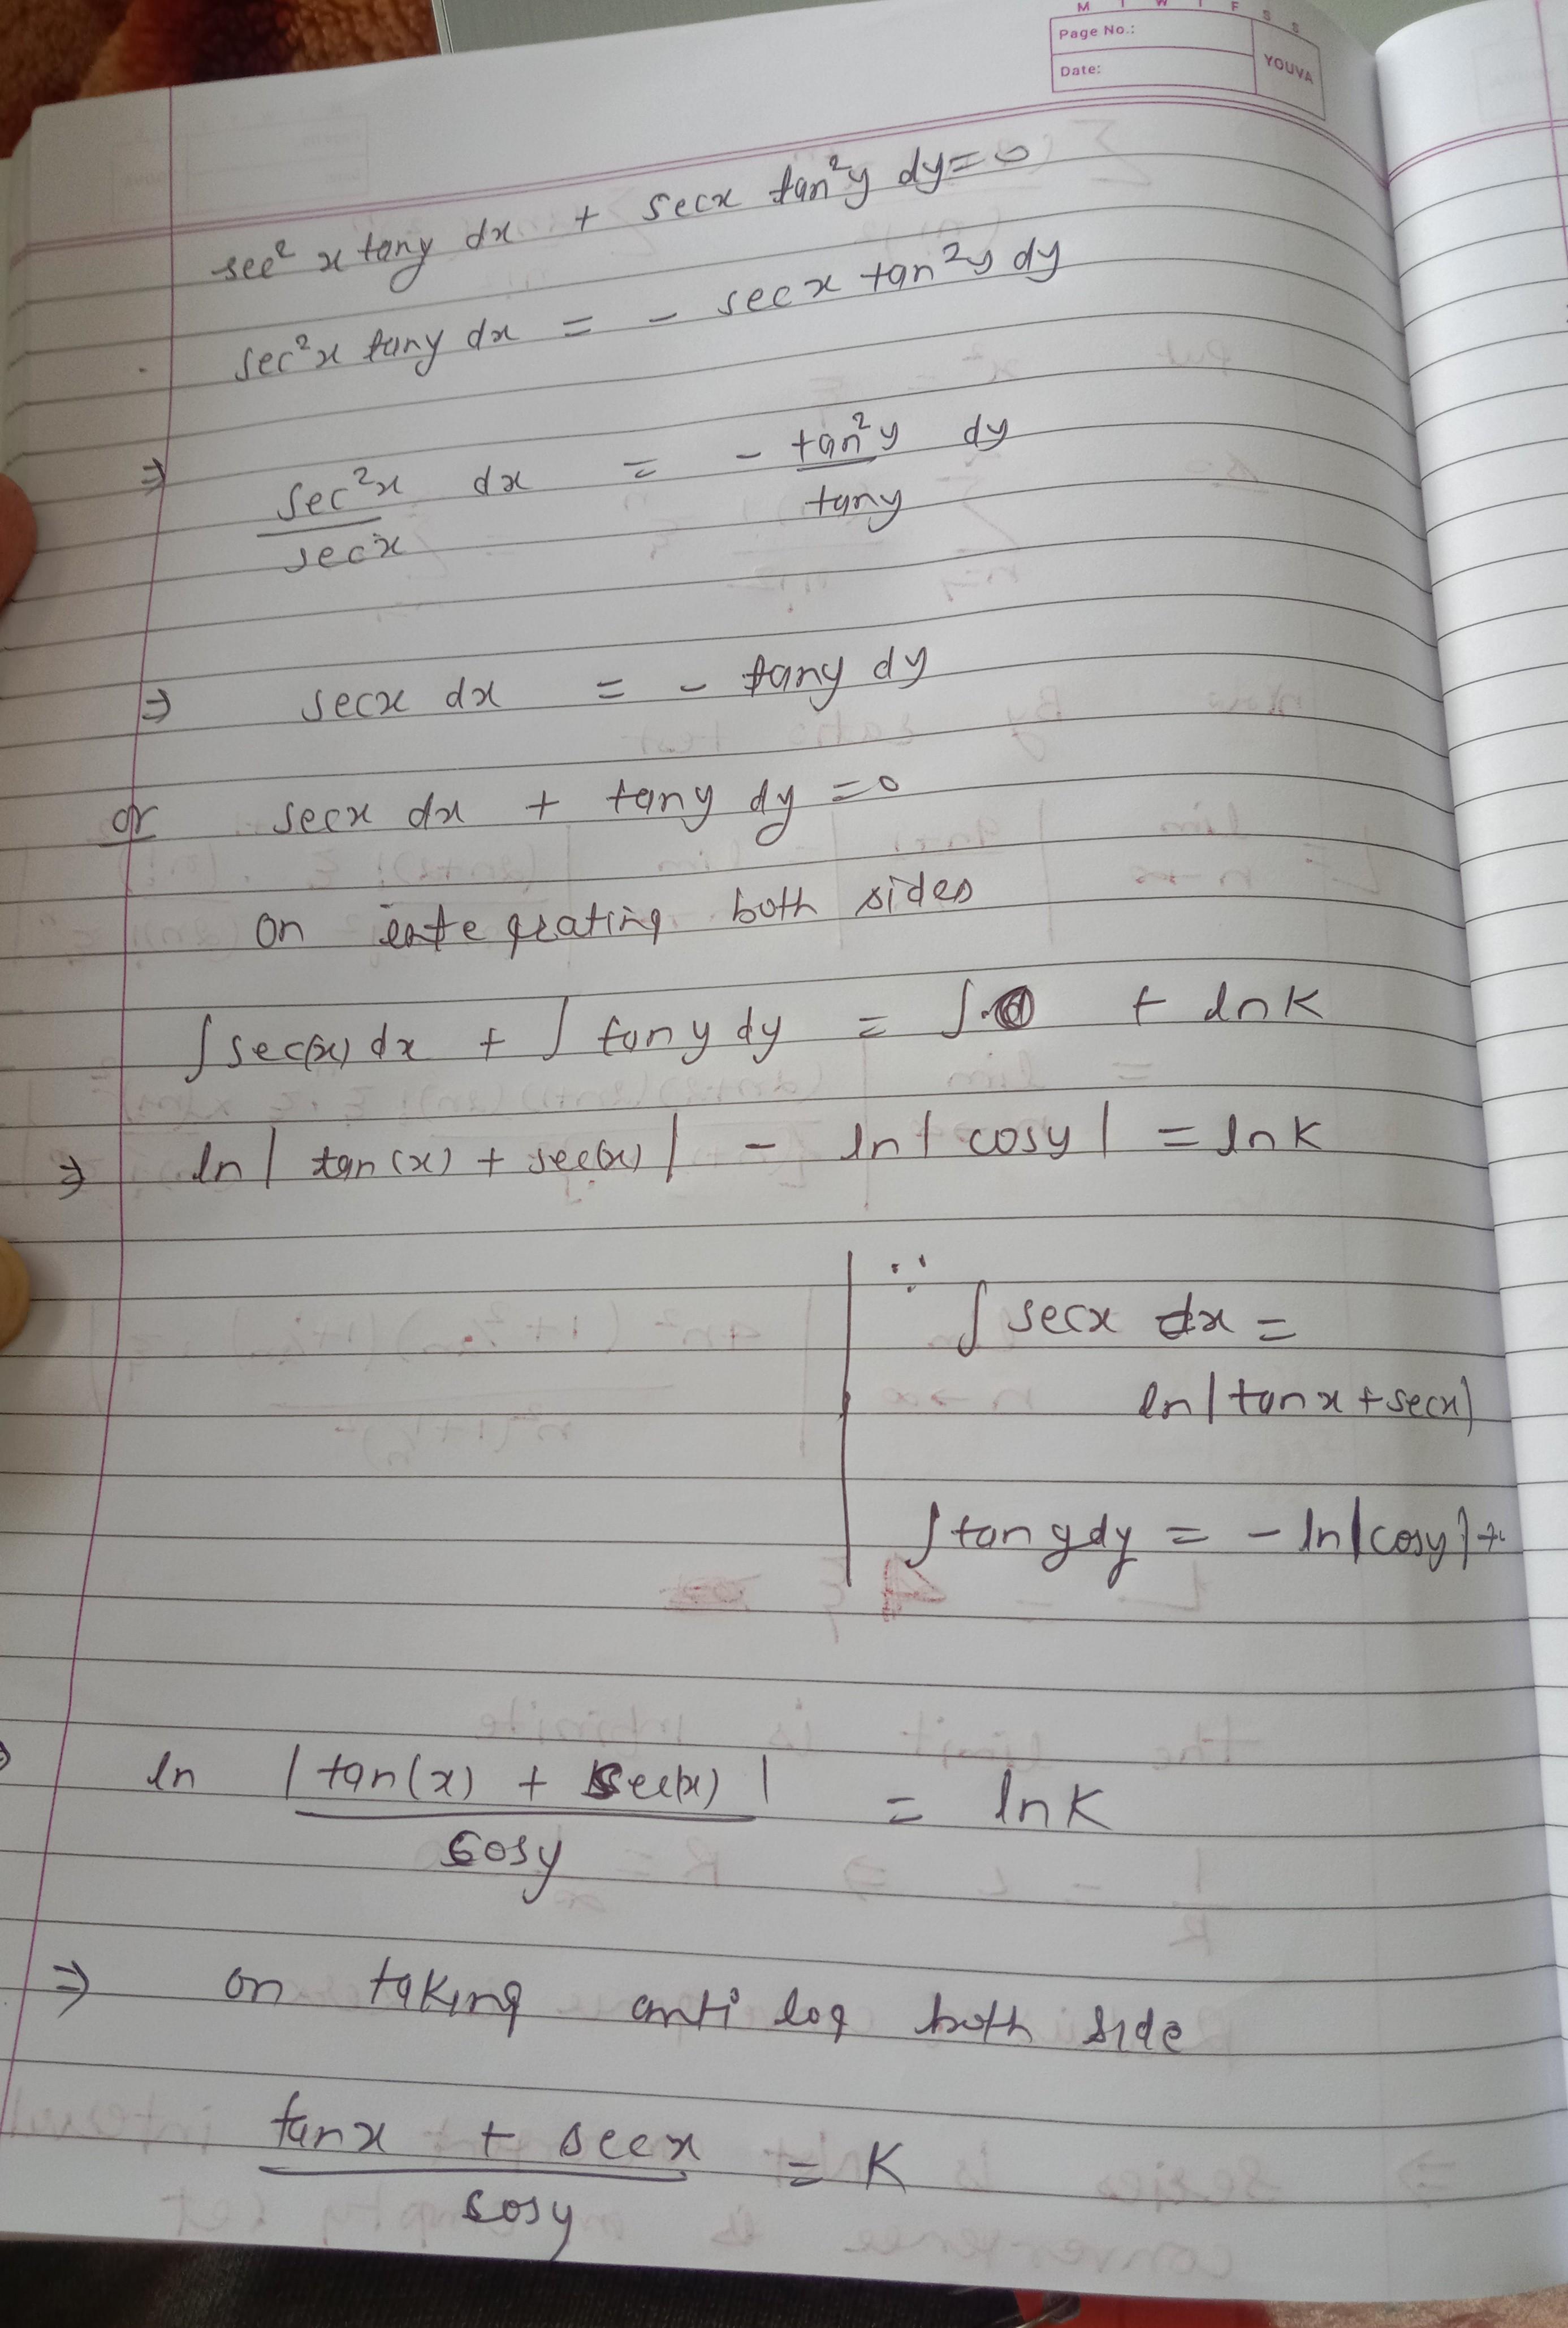 M T W T F S S
Page No.:
Date:
YOUVA
sec² x tany dx + secx tan²y dy=0
sec²x tany dx = - secx tan²y dy
⇒ sec²x/secx dx = - tan²y/tany dy
⇒ secx dx = - tany dy
or secx dx + tany dy =0
on integrating both sides
∫sec(x) dx + ∫ tany dy = ∫0 + lnK
⇒ ln| tan(x) + sec(x)| - ln| cosy| = lnK
∵ ∫ secx dx =
ln|tanx+secx|
∫tanydy = -ln|cosy|+
⇒ ln |tan(x) + sec(x)|/cosy = lnK
⇒ on taking anti log both side
tanx + secx/cosy = K